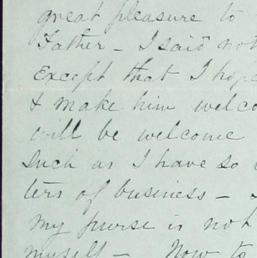 great pleasure to
Father - I said not
Except that I hope
& make him welco
will be welcome
Such as I have so
ters of business -
my purse is not
myself - Now to